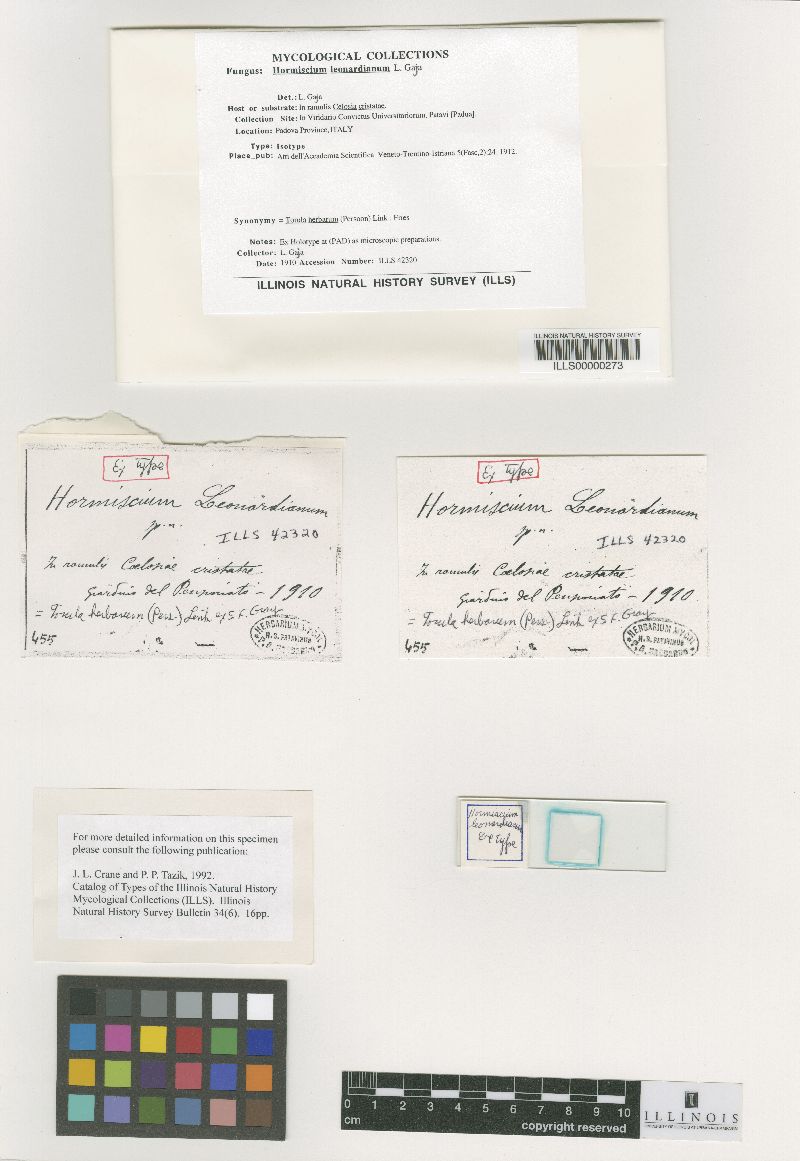 MYCOLOGICAL COLLECTIONS
Fungus: Hormiscium leonardianum L. Gaja
Det.: L. Gaja
Host or substrate: In ramulis Celosia cristatae.
Collection Site: In Viridario Convictus Universitariorum, Patavi [Padua]
Location: Padova Province, ITALY
Type: Isotype
Place_pub: Atti dell'Accademia Scientifica Veneto-Trentino-Istriana 5(Fasc,2):24. 1912.
Synonymy = Torula herbarum (Persoon) Link : Fries
Notes: Ex Holotype at (PAD) as microscopic preparations.
Collector: L. Gaja
Date: 1910 Accession Number: ILLS 42320
ILLINOIS NATURAL HISTORY SURVEY (ILLS)
ILLINOIS NATURAL HISTORY SURVEY
ILLS00000273
Ex Type
Hormiscium Leonardianum
ILLS 42320
In ramulis Celosiae cristatae
giardino del Pensionato - 1910
= Torula herbarum (Pers.) Link ex S.F. Gray
455
HERBARIUM MYCOL
H. B. PATAVINUS
P. A. SACCARDO
Ex Type
Hormiscium Leonardianum
ILLS 42320
In ramulis Celosiae cristatae
giardino del Pensionato - 1910
= Torula herbarum (Pers.) Link ex S.F. Gray
455
HERBARIUM MYCOL
H. B. PATAVINUS
P. A. SACCARDO
For more detailed information on this specimen
please consult the following publication:
J. L. Crane and P. P. Tazik, 1992.
Catalog of Types of the Illinois Natural History
Mycological Collections (ILLS). Illinois
Natural History Survey Bulletin 34(6). 16pp.
Hormiscium
leonardianum
ex type
0 1 2 3 4 5 6 7 8 9 10
cm
copyright reserved
I
ILLINOIS
UNIVERSITY OF ILLINOIS AT URBANA-CHAMPAIGN